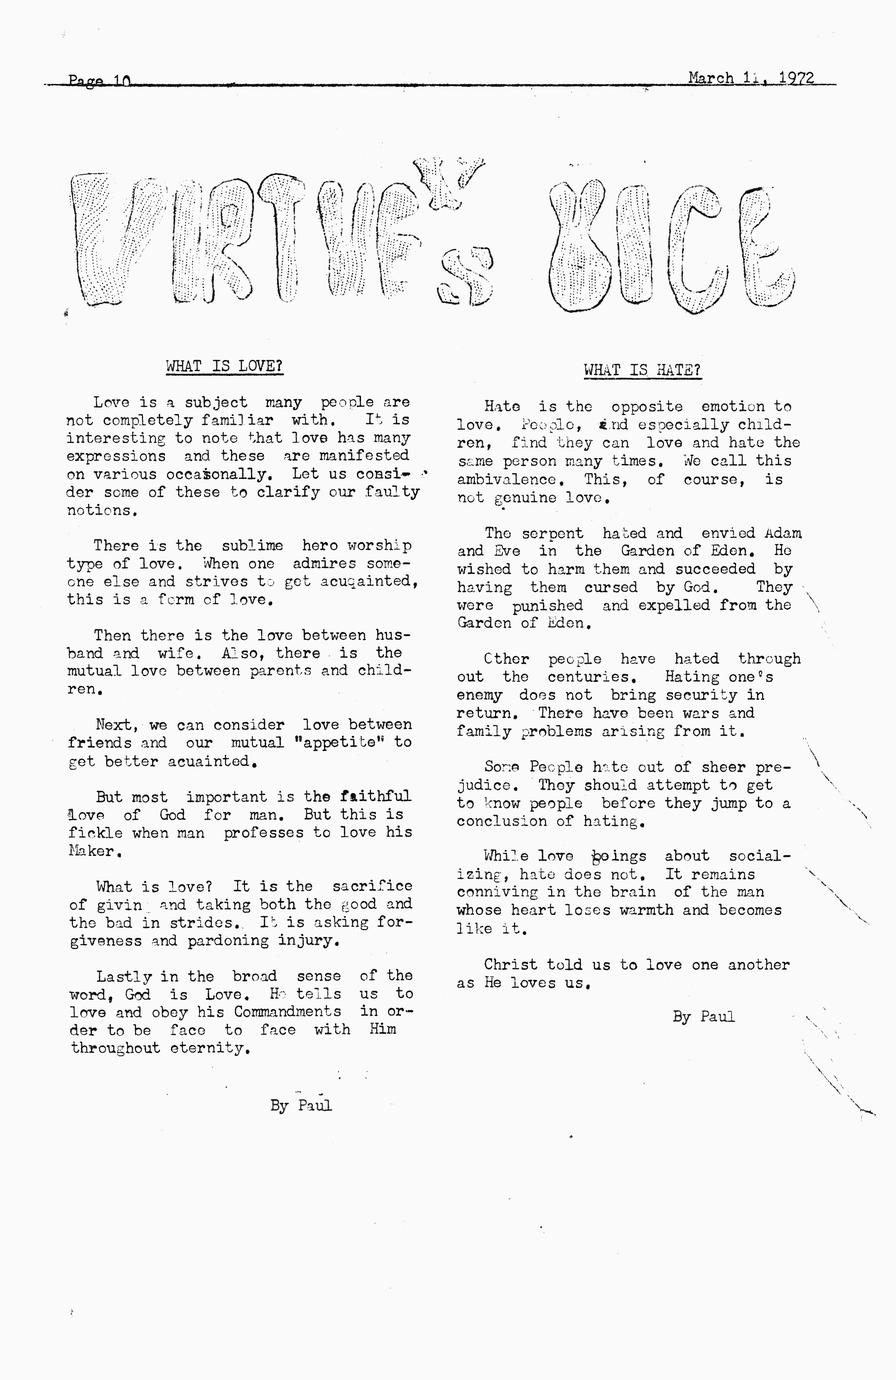 Page 10
March 11, 1972
VIRTUE
V
s
VICE
WHAT IS LOVE?
Love is a subject many people are
not completely familiar with. It is
interesting to note that love has many
expressions and these are manifested
on various occasonally. Let us consi-
der some of these to clarify our faulty
notions.
There is the sublime hero worship
type of love. When one admires some-
one else and strives to get acuqainted,
this is a form of love.
Then there is the love between hus-
band and wife. Also, there is the
mutual love between parents and child-
ren.
Next, we can consider love between
friends and our mutual "appetite" to
get better acuainted.
But most important is the faithful
love of God for man. But this is
fickle when man professes to love his
Maker.
What is love? It is the sacrifice
of givin and taking both the good and
the bad in strides. It is asking for-
giveness and pardoning injury.
Lastly in the broad sense of the
word, God is Love. He tells us to
love and obey his Commandments in or-
der to be face to face with Him
throughout eternity.
By Paul
WHAT IS HATE?
Hate is the opposite emotion to
love. People, and especially child-
ren, find they can love and hate the
same person many times. We call this
ambivalence. This, of course, is
not genuine love.
The serpent hated and envied Adam
and Eve in the Garden of Eden. He
wished to harm them and succeeded by
having them cursed by God. They
were punished and expelled from the
Garden of Eden.
Other people have hated through
out the centuries. Hating one's
enemy does not bring security in
return. There have been wars and
family problems arising from it.
Some People hate out of sheer pre-
judice. They should attempt to get
to know people before they jump to a
conclusion of hating.
While love boings about social-
izing, hate does not. It remains
conniving in the brain of the man
whose heart loses warmth and becomes
like it.
Christ told us to love one another
as He loves us.
By Paul